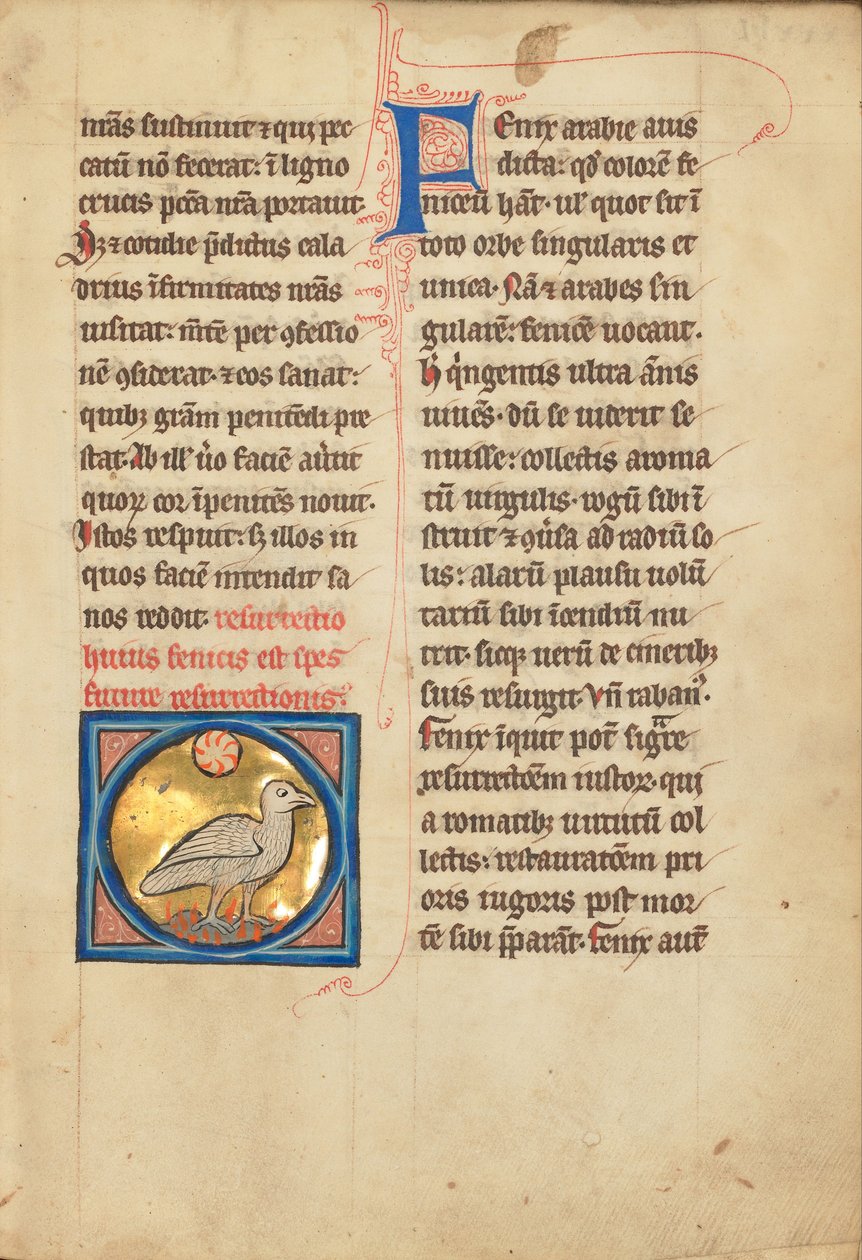 nr̄as sustinuit ⁊ qui pec
catū nō fecerat: ī ligno
crucis pcc̄a nr̄a portauit.
⁊ cotidie p̄dictus cala
drius īfirmitates nr̄as
uisitat: m̄te per ꝯfessio
nē ꝯsiderat. ⁊ eos sanat:
quibꝫ grām penitēdi pre
stat. Ab ill' u̾o faciē au̾tit
quoꝝ cor īpenitēs nouit.
Istos respuit: sꝫ illos in
quos faciē intendit sa
nos reddit. resurrectio
huius fenicis est spes
future resurrectionis.
Fenix arabie auis
dicta: qđ colorē fe
niceū hāt. ul' quot sit ī
toto orbe singularis et
unica. Nā ⁊ arabes sin
gularē: fenicē uocant.
h̾ qͥngentis ultra ānis
uiuēs. dū se uiderit se
nuisse: collectis aroma
tū uirgulis. rogū sibi ī
struit ⁊ ꝯu̾sa ad radiū so
lis: alarū plausu uolū
tariū sibi īcendiū nu
trit. sicqꝫ uerū de cineribꝫ
suis resurgit. Vn̄ raban'.
Fenix īquit pot̄ sig̾re
resurrectōem iustoꝝ. qui
aromatibꝫ uirtutū col
lectis: restauratōem pri
oris uigoris post mor
tē sibi p̄parāt. Fenix aut̄